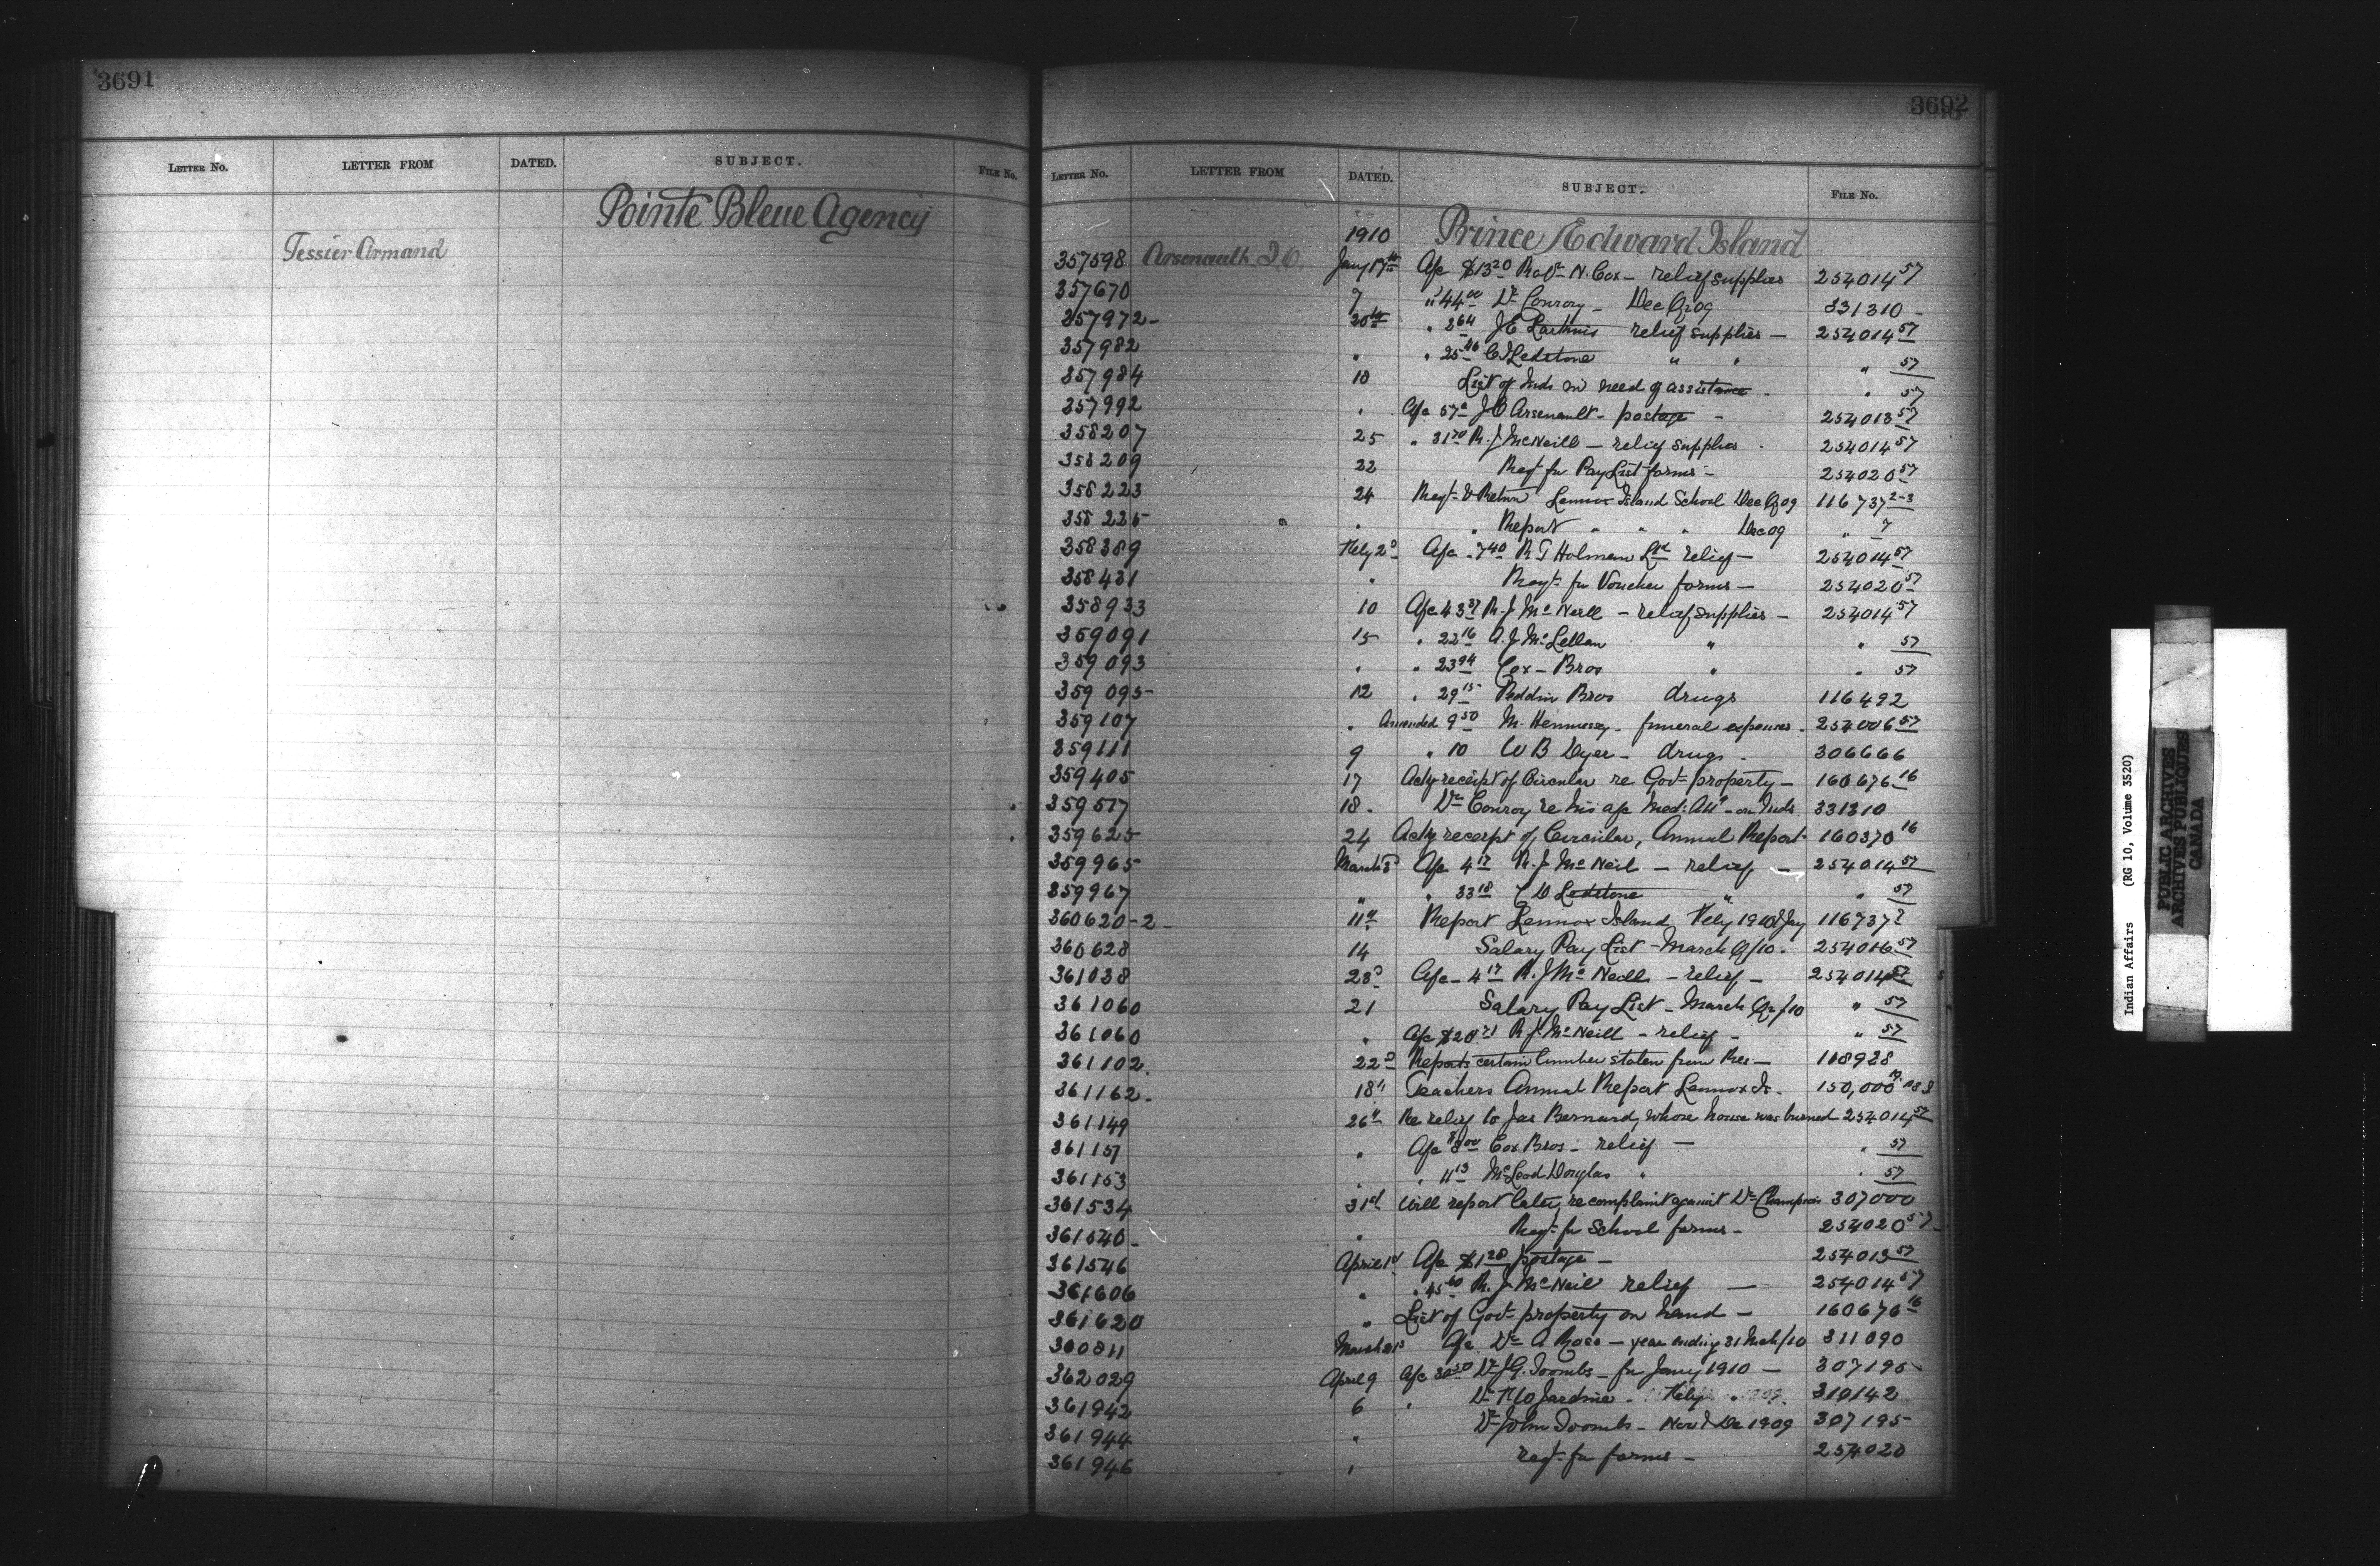 3691
LETTER NO. LETTER FROM DATED. SUBJECT. FILE NO.
Pointe Bleue Agency
Tessier Armand
3692
LETTER NO. LETTER FROM DATED. SUBJECT. FILE NO.
1910 Prince Edward Island
357598 Arsenault, J.O. Jany 17th A/c $13.20 Robt N. Cox - relief supplies 254014 57
357670 7 " 44.00 Dr Conroy - Dec Q 09 331310 -
357972 - 20th " 2.64 J E relief supplies - 254014 57
357982 " " 25.46 C D Ledstone " " " 57
357984 18 List of Inds in need of assistance - " 57
357992 " A/c 57c J O Arsenault - postage - 254013 57
358207 25 " 31.70 R. J McNeill - relief supplies - 254014 57
358209 22 Reqt for Pay List forms - 254020 57
358223 24 Rept & Return Lennox Island School Dec Q 09 116737 2-3
358225 " " Report " " " Dec 09 " 7
358389 Feby 2d A/c 7.40 R T Holman Ltd relief - 254014 57
358431 " Reqt for Voucher forms - 254020 57
358933 10 A/c 43.37 R. J McNeill - relief supplies - 254014 57
359091 15 " 22.16 A. J McLellan " " 57
359093 " " 23.94 Cox - Bros " " 57
359095 - 12 " 29.15 Reddin Bros drugs 116492
359107 " Amended 9.50 M. Hennessy - funeral expenses - 254006 57
359111 9 " 10 W B Dyer - drugs - 306666
359405 17 Ackg receipt of Circular re Govt property - 160676 16
359517 18 - Dr Conroy re his a/c Med: Att - on Inds 331310
359625 24 Ackg receipt of Circular, Annual Report - 160370 16
359965 March 8 A/c 4.17 R. J McNeil - relief - 254014 57
359967 " " 33.18 C D Ledstone " " 57
360620-2 - 11th Report Lennox Island, Feby 1910 & Jay 116737
360628 14 Salary Pay List - March Q/10 - 254016 57
361038 23d A/c - 4.17 R. J McNeill - relief - 254014 57
361060 21 Salary Pay List - March Qr/10 " 57
361060 " A/c $20.71 R. J. McNeill - relief - " 57
361102. 22d Reports certain lumber stolen from Res - 118928
361162 - 18th Teachers Annual Report Lennox Is. 150,000
361149 26th Re relief to Jas Bernard, whose house was burned 254014 57
361151 " A/c $8.00 Cox Bros - relief - " 57
361153 " " 11.13 McLeod Douglas " " 57
361534 31st Will report later re complaint against Dr Champion 307000
361540 - " Reqt for School forms - 254020 57
361546 April 1st A/c $1.28 postage - 254013 57
361606 " " 45.60 R. J McNeil relief - 254014 57
361620 " List of Govt property on hand - 160676 16
360811 March 21st A/c Dr A Ross - year ending 31 Mch/10 311090
362029 April 9 A/c 30.50 Dr J. G. Toombs - for Jany 1910 - 307195
361942 6 " Dr F W Jardine - Feby " 1909. 310142
361944 " Dr John Toombs - Nov & Dec 1909 307195
361946 " reqt for forms - 254020
Indian Affairs (RG 10, Volume 3520)
PUBLIC ARCHIVES
ARCHIVES PUBLIQUES
CANADA